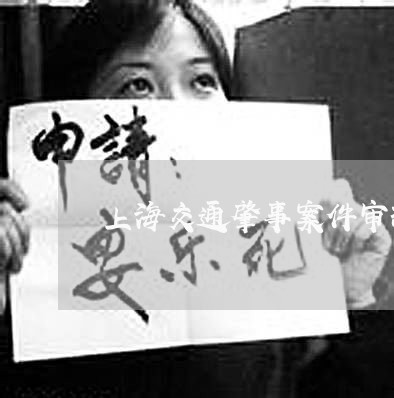 申請：
上海交通肇事案件审
安乐死